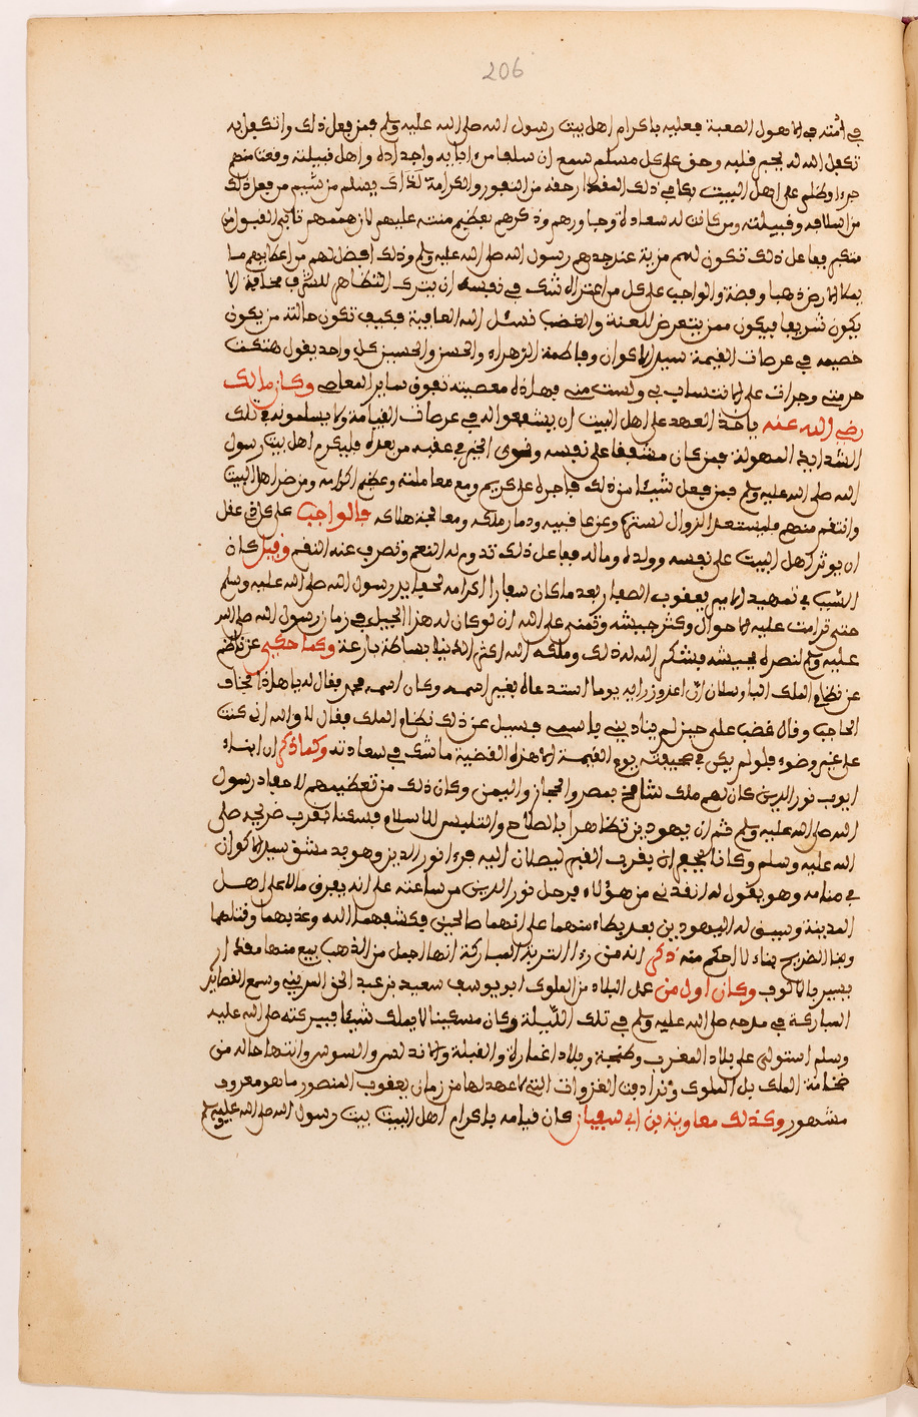 206
في أمته في الاهول الصعبة فعليه باكرام اهل بيت رسول الله صلى الله عليه وسلم فمن فعل ذلك وا تكفل به
تكفل الله له بجبر قلبه وحق على كل مسلم سمع ان سلفا من ابايه واجداده واهل قبيلته وقعت منهم
جرءة وظلم على اهل البيت في ذلك المقدار حقه من التعزير والكرامة
من اسلافه وقبيلته ومن كانت له سعادة وجاورهم وذكرهم بعظيم منته عليهم
متكبر فاعل ذلك تكون لهم مزية عند جدهم رسول الله صلى الله عليه وسلم وذلك افضل لهم من اعطايهم مـا
يملا الارض ذهبا وفضة والواجب على كل من اعتراه شك في نفسه ان يترك التظاهر للشرف مخافة الا
يكون شريفا فيكون ممن يتعرض للعنة والغضب نسئل الله العافية فكيف تكون حالته من يكون
خصيمه في عرصات القيمة سيد الاكوان وفاطمة الزهراء والحسن والحسين كل واحد يقول هتكت
حرمتي وجرات على الانتساب بي ولست مني فهذه معصية تفوق ساير المعاصي وكان مالك
رضي الله عنه ياخذ العهد على اهل البيت ان يشفعوا له في عرصات القيامة ولا يسلمونه في تلك
الشدايد المهولة فمن كان مشفقا على نفسه وضوى الخير في عقبه من بعده فليكرم اهل بيت رسول
الله صلى الله عليه وسلم فمن فعل شيئا من ذلك فاجره على كريم ومع معاملته وعظيم اكرامه ومن ضر اهل البيت
وانتقم منهم فليستعد الزوال لسترها وعز عافيه ودمار ملكه ومعالجة هلاكه فالواجب على كل ذي عقل
ان يوثر اهل البيت على نفسه وولده وماله ففاعل ذلك تدوم له النعم وتصرف عنه النقم وقيل كان
السبب في تمهيد الامير يعقوب الصفار بعدما كان سفارا اكرامه لحفايد رسول الله صلى الله عليه وسلم
حتى ترامت عليه الاموال وكثر جيشه وتمنى على الله ان لو كان له هذا الجيل في زمان رسول الله صلى الله
عليه وسلم لنصره بجيشه فشكر الله له ذلك وملكه الله اكثر الدنيا بصاطة بارعة وكما حكي عن
عن نظام الملك انه اعز وزرايه يوما استدعاه بغير اسمه وكان اسمه محمد فقال له يا هذا
الحاجب وقال غضب على حين لم يناديني باسمي فسيل عن ذلك نظام الملك فقال لا والله اني كنت
على غير وضوء فلو لم يكن في صحيفته يوم القيمة الا هذه القضية ما شك في سعادته وكما ذكر ان ابنـاء
ايوب نور الدين كان لهم ملك شامخ بمصر والحجاز واليمن وكان ذلك من تعظيمهم لاحفاد رسول
الله صلى الله عليه وسلم ثم ان يهوديين تظاهرا بالصلاح والتلبس للاسلام فسكنا بقرب ضريحه صلى
الله عليه وسلم وكانا يحفران بقرب القبر ليصلان اليه فرءا نور الدين وهو بدمشق سيد الاكوان
في منامه وهو يقول له انقذني من هؤلاء فرحل نور الدين من ساعته على انه يفرق مالا على اهـل
المدينة وسيق له اليهوديين بعد بطاء منهما على انهما صالحين فكشفهما الله وعذبهما وقتلهما
وبنا الضريح بناء لا احكم منه ذكر انه من رءا التربة المباركة انها اجمل من الذهب بيع منها مقدار
يسير بالالوف وكان اول من عمل البلاد من الملوك ابو يوسف سعيد بن عبد الحق المريني وسمع القصايد
المباركة في مدحه صلى الله عليه وسلم في تلك الليلة وكان مسكينا لا يملك شيئا فببركته صلى الله عليه
وسلم استولى على بلاد المغرب وطنجة وبلاد اغمارة والقبلة والاندلس والسوس وانتها حاله من
ضخامة الملك بل الملوك وترادفت الغزوات التي لا عهد لها من زمان يعقوب المنصور ما هو معروف
مشهور وكذلك معاوية بن ابي سفيان كان قيامه باكرام اهل البيت بيت رسول الله صلى الله عليه وسلم